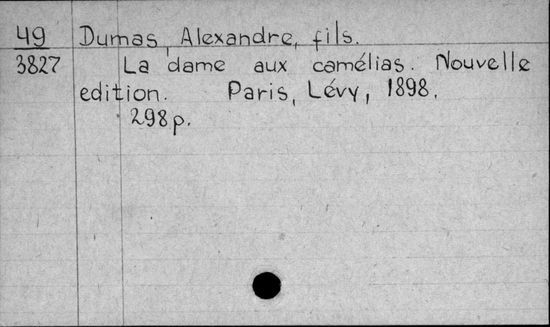 49 Dumas, Alexandre, fils.
3827 La dame aux camélias. Nouvelle
edition. Paris, Lévy, 1898.
298p.